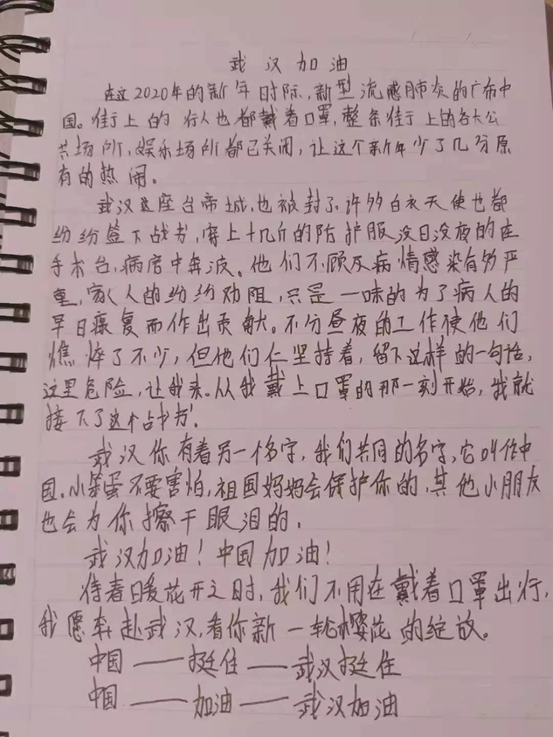 武汉加油
在这2020年的新年时际,新型流感肺炎的广布中
国。街上的行人也都戴着口罩,整条街上的各大公
共场所,娱乐场所都已关闭,让这个新年少了几分原
有的热闹。
武汉这座古帝城,也被封了许多白衣天使也都
纷纷签下战书,穿上十几斤的防护服没日没夜的在
手术台,病房中奔波。他们不顾及病情感染有多严
重,家人的纷纷劝阻,只是一味的为了病人的
早日康复而作出贡献。不分昼夜的工作使他们
憔悴了不少,但他们仁坚持着,留下这样的一句话,
这里危险,让我来。从我戴上口罩的那一刻开始,我就
接下了这个占书。
武汉你有着另一个名字,我们共同的名字,它叫作中
国。小笨蛋不要害怕,祖国妈妈会保护你的,其他小朋友
也会为你擦干眼泪的。
武汉加油!中国加油!
待春日暖花开之时,我们不用在戴着口罩出行,
我愿奔赴武汉,看你新一轮樱花的绽放。
中国——挺住——武汉挺住
中国——加油——武汉加油